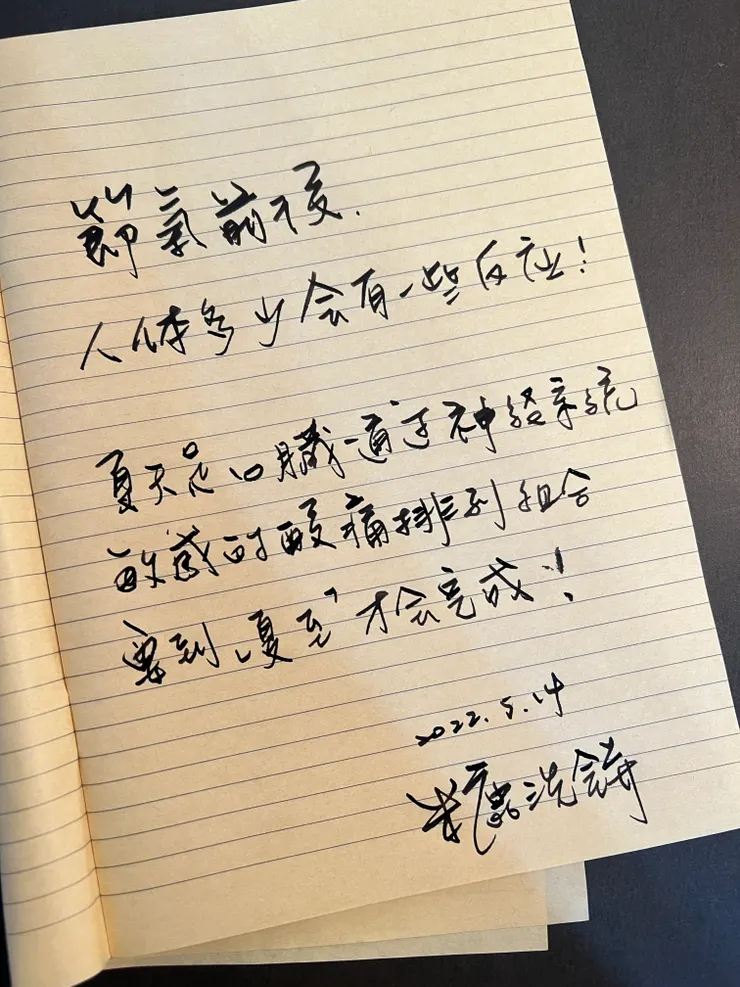 節氣前後.
人体多少会有一些反应!
夏天是心臟,通过神経系統
敏感的酸痛排列組合
要到"夏至"才会完成!
2022.5.14